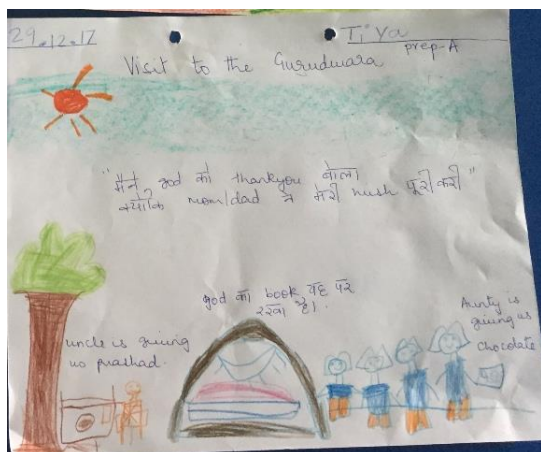 29.12.17
Tiya
prep-A
Visit to the Gurudwara
"मैंने god को thankyou बोला
क्योंकि mom/dad ने मेरी wish पूरी करी"
god का book यह पर
रखा है।
uncle is giving
us prashad.
Aunty is
giving us
chocolate